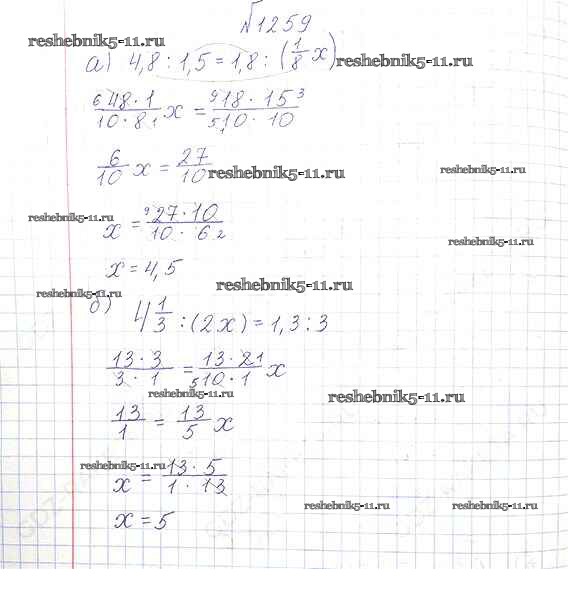 №1259
reshebnik5-11.ru
а) 4,8 : 1,5 = 1,8 : (1/8 x) reshebnik5-11.ru
6 48·1 / 10·8 1 x = 9 18·15 3 / 5 10·10
6/10 x = 27/10 reshebnik5-11.ru
reshebnik5-11.ru
reshebnik5-11.ru
x = 9 27·10 / 10·6 2
reshebnik5-11.ru
x = 4,5
reshebnik5-11.ru
reshebnik5-11.ru
б) 4 1/3 : (2x) = 1,3 : 3
13·3 / 3·1 = 13·2 1 / 5 10·1 x
reshebnik5-11.ru
reshebnik5-11.ru
13/1 = 13/5 x
reshebnik5-11.ru
x = 13·5 / 1·13
reshebnik5-11.ru
reshebnik5-11.ru
x = 5